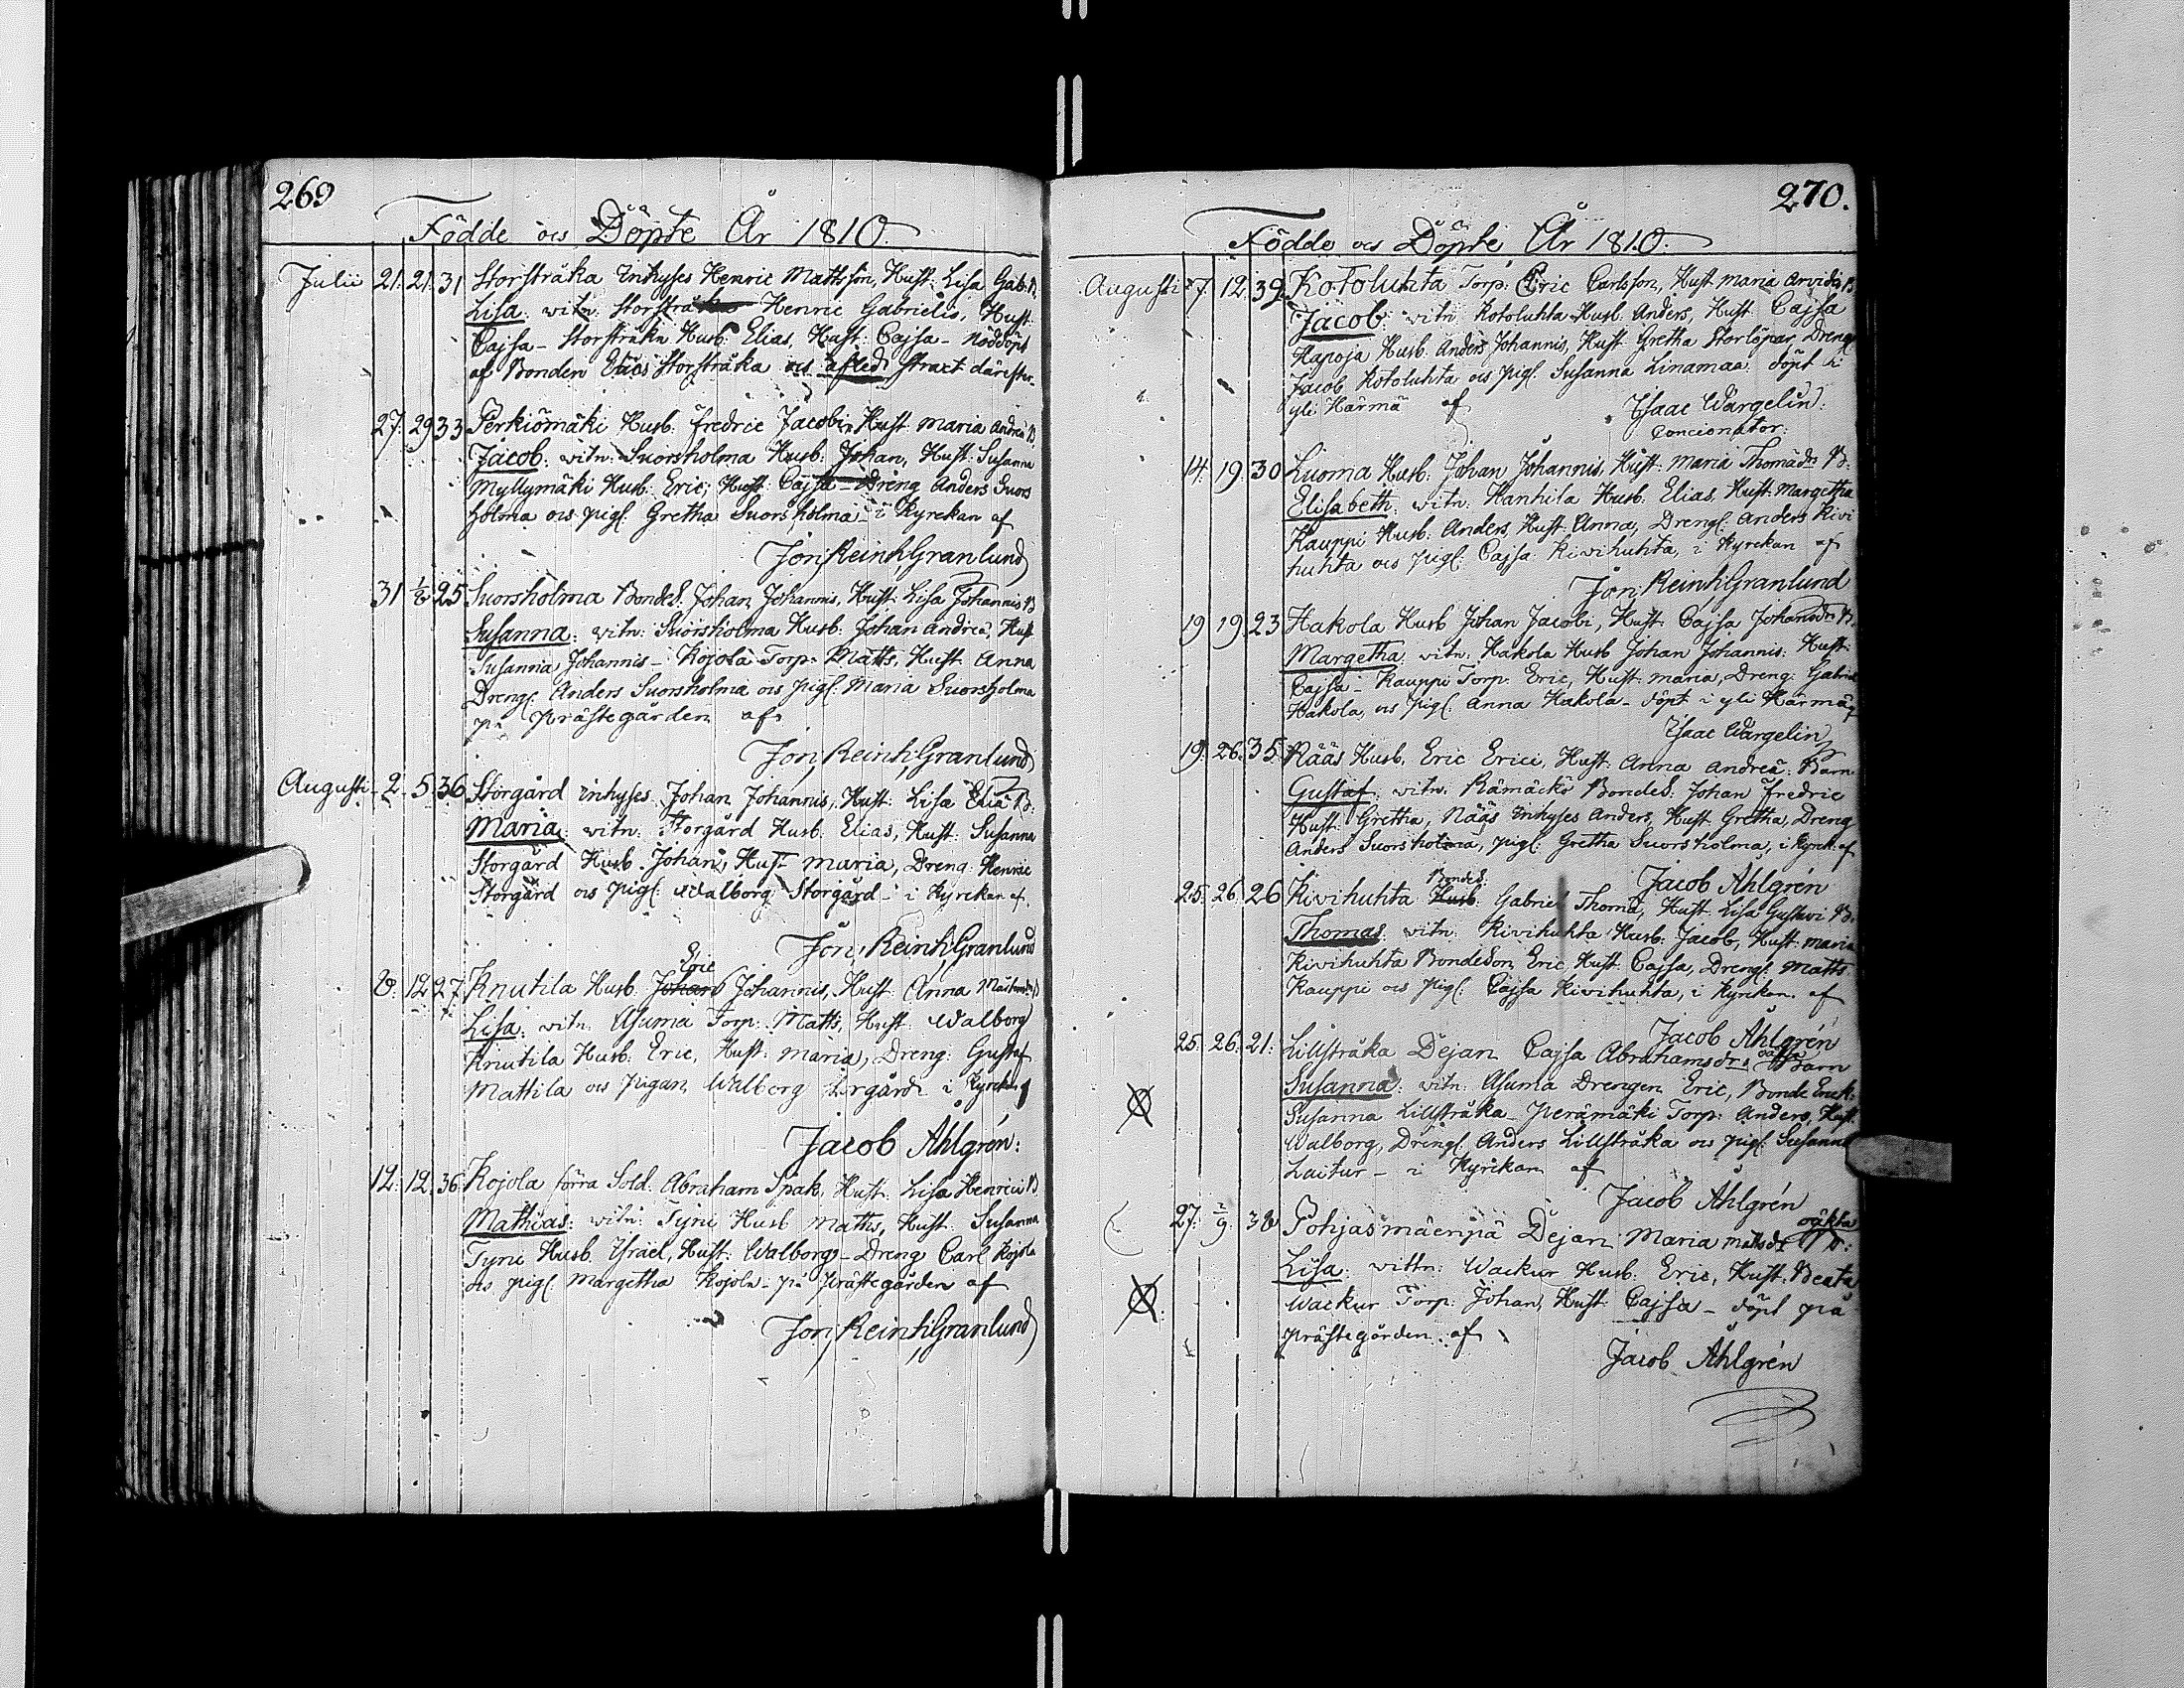 269
Födde och Döpte År 1810.
Julii 21. 21. 31 Storstråka Inhyses Henric Mattsson, Hust. Lisa Gab. B.
Lisa: witn: Storstråka Henric Gabrielis, Hust.
Cajsa - Storstråka Husb: Elias, Hust: Cajsa - Nöddöpt
af Bonden Elias Storstråka och afled straxt därefter.
27. 29 33 Perkiömäki Husb. Fredric Jacobi Hust Maria Andreæ B.
Jacob: witn: Suorsholma Husb: Johan, Hust: Susanna
Myllymäki Husb. Eric; Hust Cajsa - Dreng Anders Suors
holma och pig: Gretha Suorsholma - i Kyrckan af
Jon, Reinh, Granlund
31 1/8 25 Suorsholma BondeS: Johan Johannis, Hust: Lisa Johannis B
Susanna: witn: Suorsholma Husb: Johan Andreæ, Hust
Susanna Johannis - Kojola Torp: Matts, Hust Anna
Dreng: Anders Suorsholma och pig: Maria Suorsholma
på prästegården af
Jon, Reinh, Granlund
Augusti 2. 5. 36 Storgård inhyses Johan Johannis, Hust: Lisa Eliæ B:
Maria: witn: Storgård Husb: Elias, Hust: Susanna
Storgård Husb. Johan, Hust Maria, Dreng: Henric
Storgård och pig: Walborg Storgård - i Kyrckan af
Jon, Reinh, Granlund
Eric
8. 12 27 Knutila Husb. Johan Johannis, Hust: Anna B
Lisa: witn: Asuma Torp: Matts, Hust: Walborg
Knutila Husb: Eric, Hust: Maria, Dreng: Gustaf
Mattila och pigan Walborg Storgård i Kyrckan af
Jacob Åhlgrén:
12. 12. 36 Kojola förra Sold. Abraham Spak, Hust: Lisa Henrici B
Mathias: witn: Tyni Husb Matths, Hust: Susanna
Tyni Husb. Israel, Hust: Walborg - Dreng Carl Kojola
och pig: Margetha Kojola - på prästegården af
Jon, Reinh, Granlund
270.
Födde och Döpte År 1810.
Augusti 7. 12. 39. Kotoluhta Torp: Eric Carlsson, Hust Maria Arvidi B
Jacob: witn Kotoluhta Husb. Anders, Hust. Cajsa
Hapoja Husb. Anders Johannis, Hust: Gretha Storlöpar, Dreng:
Jacob Kotoluhta och pig: Susanna Linamaa. döpt i
yli Härmä af Isaac Wargelin:
Concionator:
14. 19. 30 Luoma Husb: Johan Johannis, Hust: Maria Thomædr B:
Elisabeth: witn: Hanhila Husb. Elias, Hust: Margetha
Kauppi Husb. Anders, Hust: Anna, Dreng: Anders Kivi
huhta och pig: Cajsa Kivihuhta, i Kyrckan af
Jon, Reinh, Granlund
19 19. 23 Hakola Husb Johan Jacobi, Hust: Cajsa Johansdr B.
Margetha: witn: Hakola Husb Johan Johannis: Hust:
Cajsa - Kauppi Torp: Eric, Hust Maria, Dreng: Gabriel
Hakola, och pig: Anna Hakola - döpt i yli Härmä af
Isaac Wargelin
19. 26. 35. Nääs Husb. Eric Erici, Hust: Anna Andreæ: Barn
Gustaf: witn: Rämäckö BondeS: Johan Fredric
Hust: Gretha, Nääs Inhyses Anders, Hust Gretha, Dreng
Anders Suorsholma, pig: Gretha Suorsholma, i Kyrck. af
Jacob Åhlgrén
BondeS:
25. 26. 26 Kivihuhta Husb: Gabriel Thomæ, Hust: Lisa Gustavi B.
Thomas: witn: Kivihuhta Husb: Jacob, Hust: Maria
Kivihuhta BondeSon Eric, Hust. Cajsa, Dreng: Matts
Kauppi och pig: Cajsa Kivihuhta, i Kyrckan. af
Jacob Åhlgrén
25. 26. 21: Lillstråka Dejan Cajsa Abrahamsdr: oäkta Barn
Susanna: witn: Asuma Drengen Eric, Bonde
Susanna Lillstråka - Perämäki Torp: Anders, Hust.
Walborg, Dreng: Anders Lillstråka och pig: Susanna
Laitur - i Kyrckan af
Jacob Åhlgrén
27. 2/9. 38 Pohjasmäenpä Dejan Maria Mattsdr oäkta B:
Lisa: wittn: Wackur Husb: Eric, Hust. Beata
Wackur Torp: Johan, Hust: Cajsa - döpt på
prästegården. af
Jacob Åhlgrén